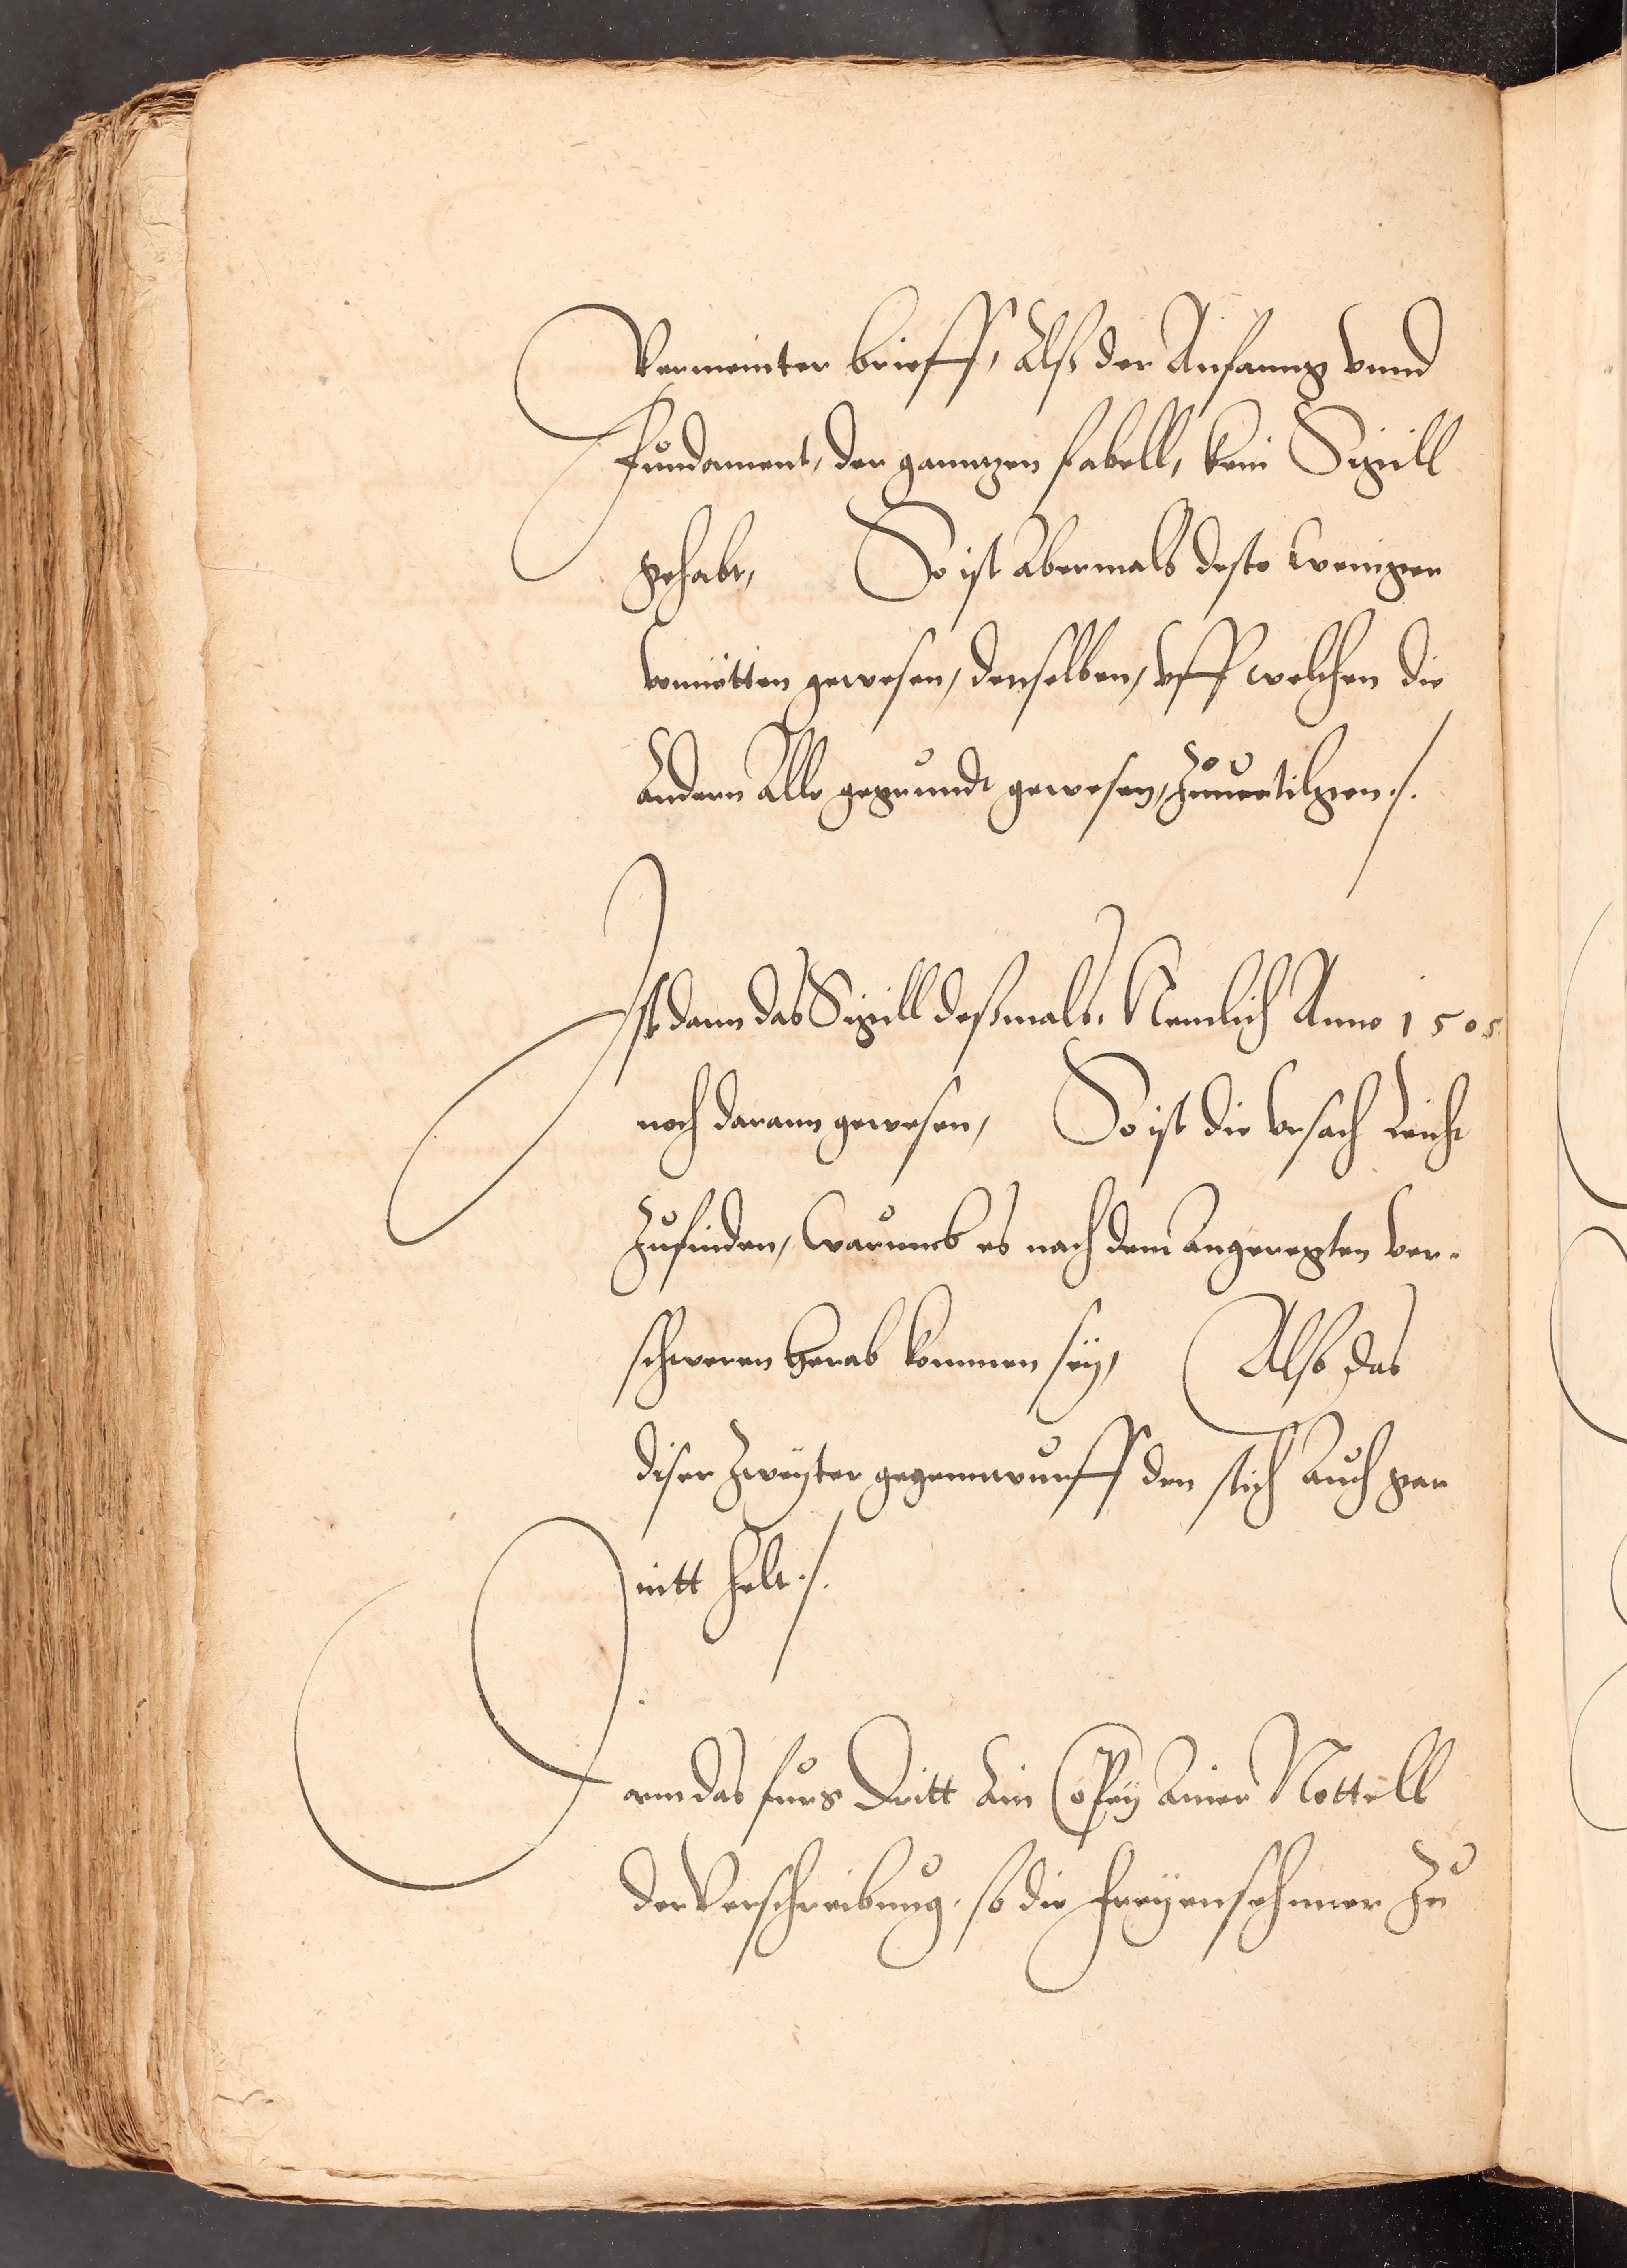 Vermeinter brieff, Alß der Anfanng vnnd
Fundament, der ganntzen fabell, kein Sigill
gehabt, So ist abermals desto weniger
vonnötten gewesen, denselben, vff welchen die
andern Alle gegrundt gewesen, zuuertilgen ./.
Ist dann das Sigill deßmals, Nemlich Anno 1505
noch darann gewesen, So ist die vrsach Leicht
zufinden, warumb es nach dem angeregten ver-
schweren herab kommen sey, Also das
diser zweyter gegennwurff den stich auch gar
nitt helt ./.
Dann das furs Dritt ein Copey einer Nottell
der Verschreibung, so die Freyen zu